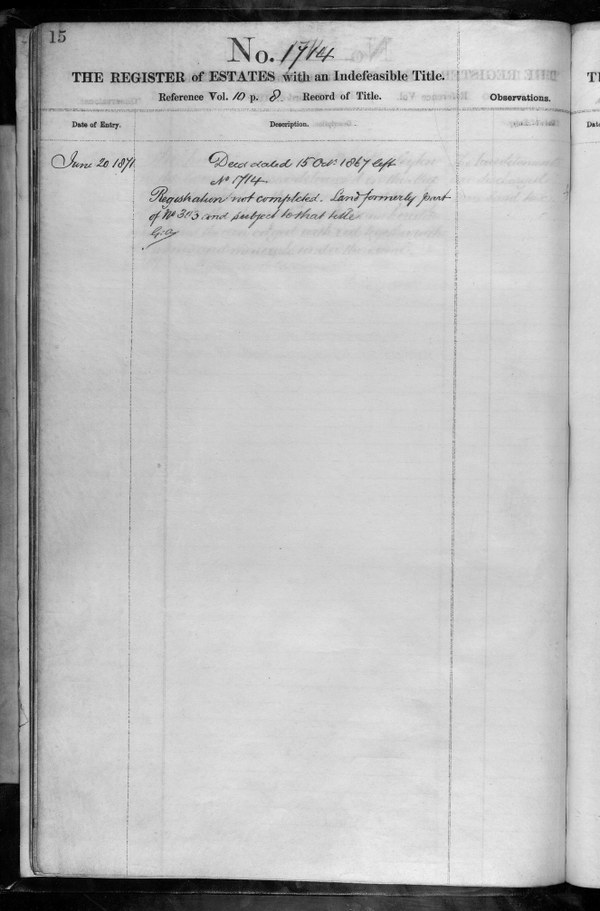 15
No. 1714
THE REGISTER of ESTATES with an Indefeasible Title.
Reference Vol. 10 p. 8. Record of Title.
Observations.
Date of Entry.
Description.
June 20 1871
Deed dated 15 Oct 1867 left
No 1714
Registration not completed. Land formerly part
of No 303 and subject to that title